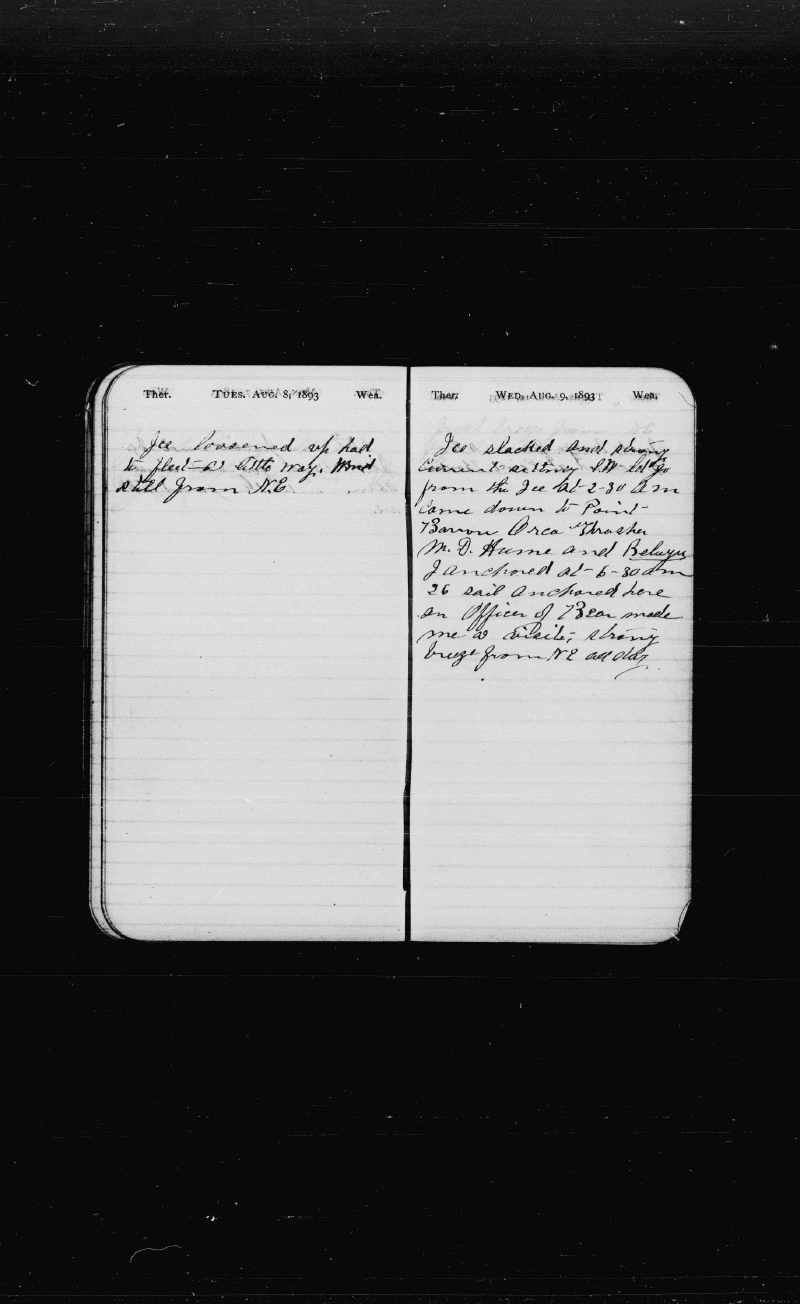 Ther. TUES. AUG. 8, 1893 Wea.
Ice loosened up had
to fleet a little way. Wind
still from N.E
Ther. WED. AUG. 9, 1893 Wea.
Ice slacked and strong
Current setting S.W let go
from the Ice at 2-30 am
came down to Point
Barrow Orca Thrasher
M. D. Hume and Beluga
I anchored at 6-30 am
26 sail anchored here
an Officer of Bear made
me a visit, strong
breeze from NE all day